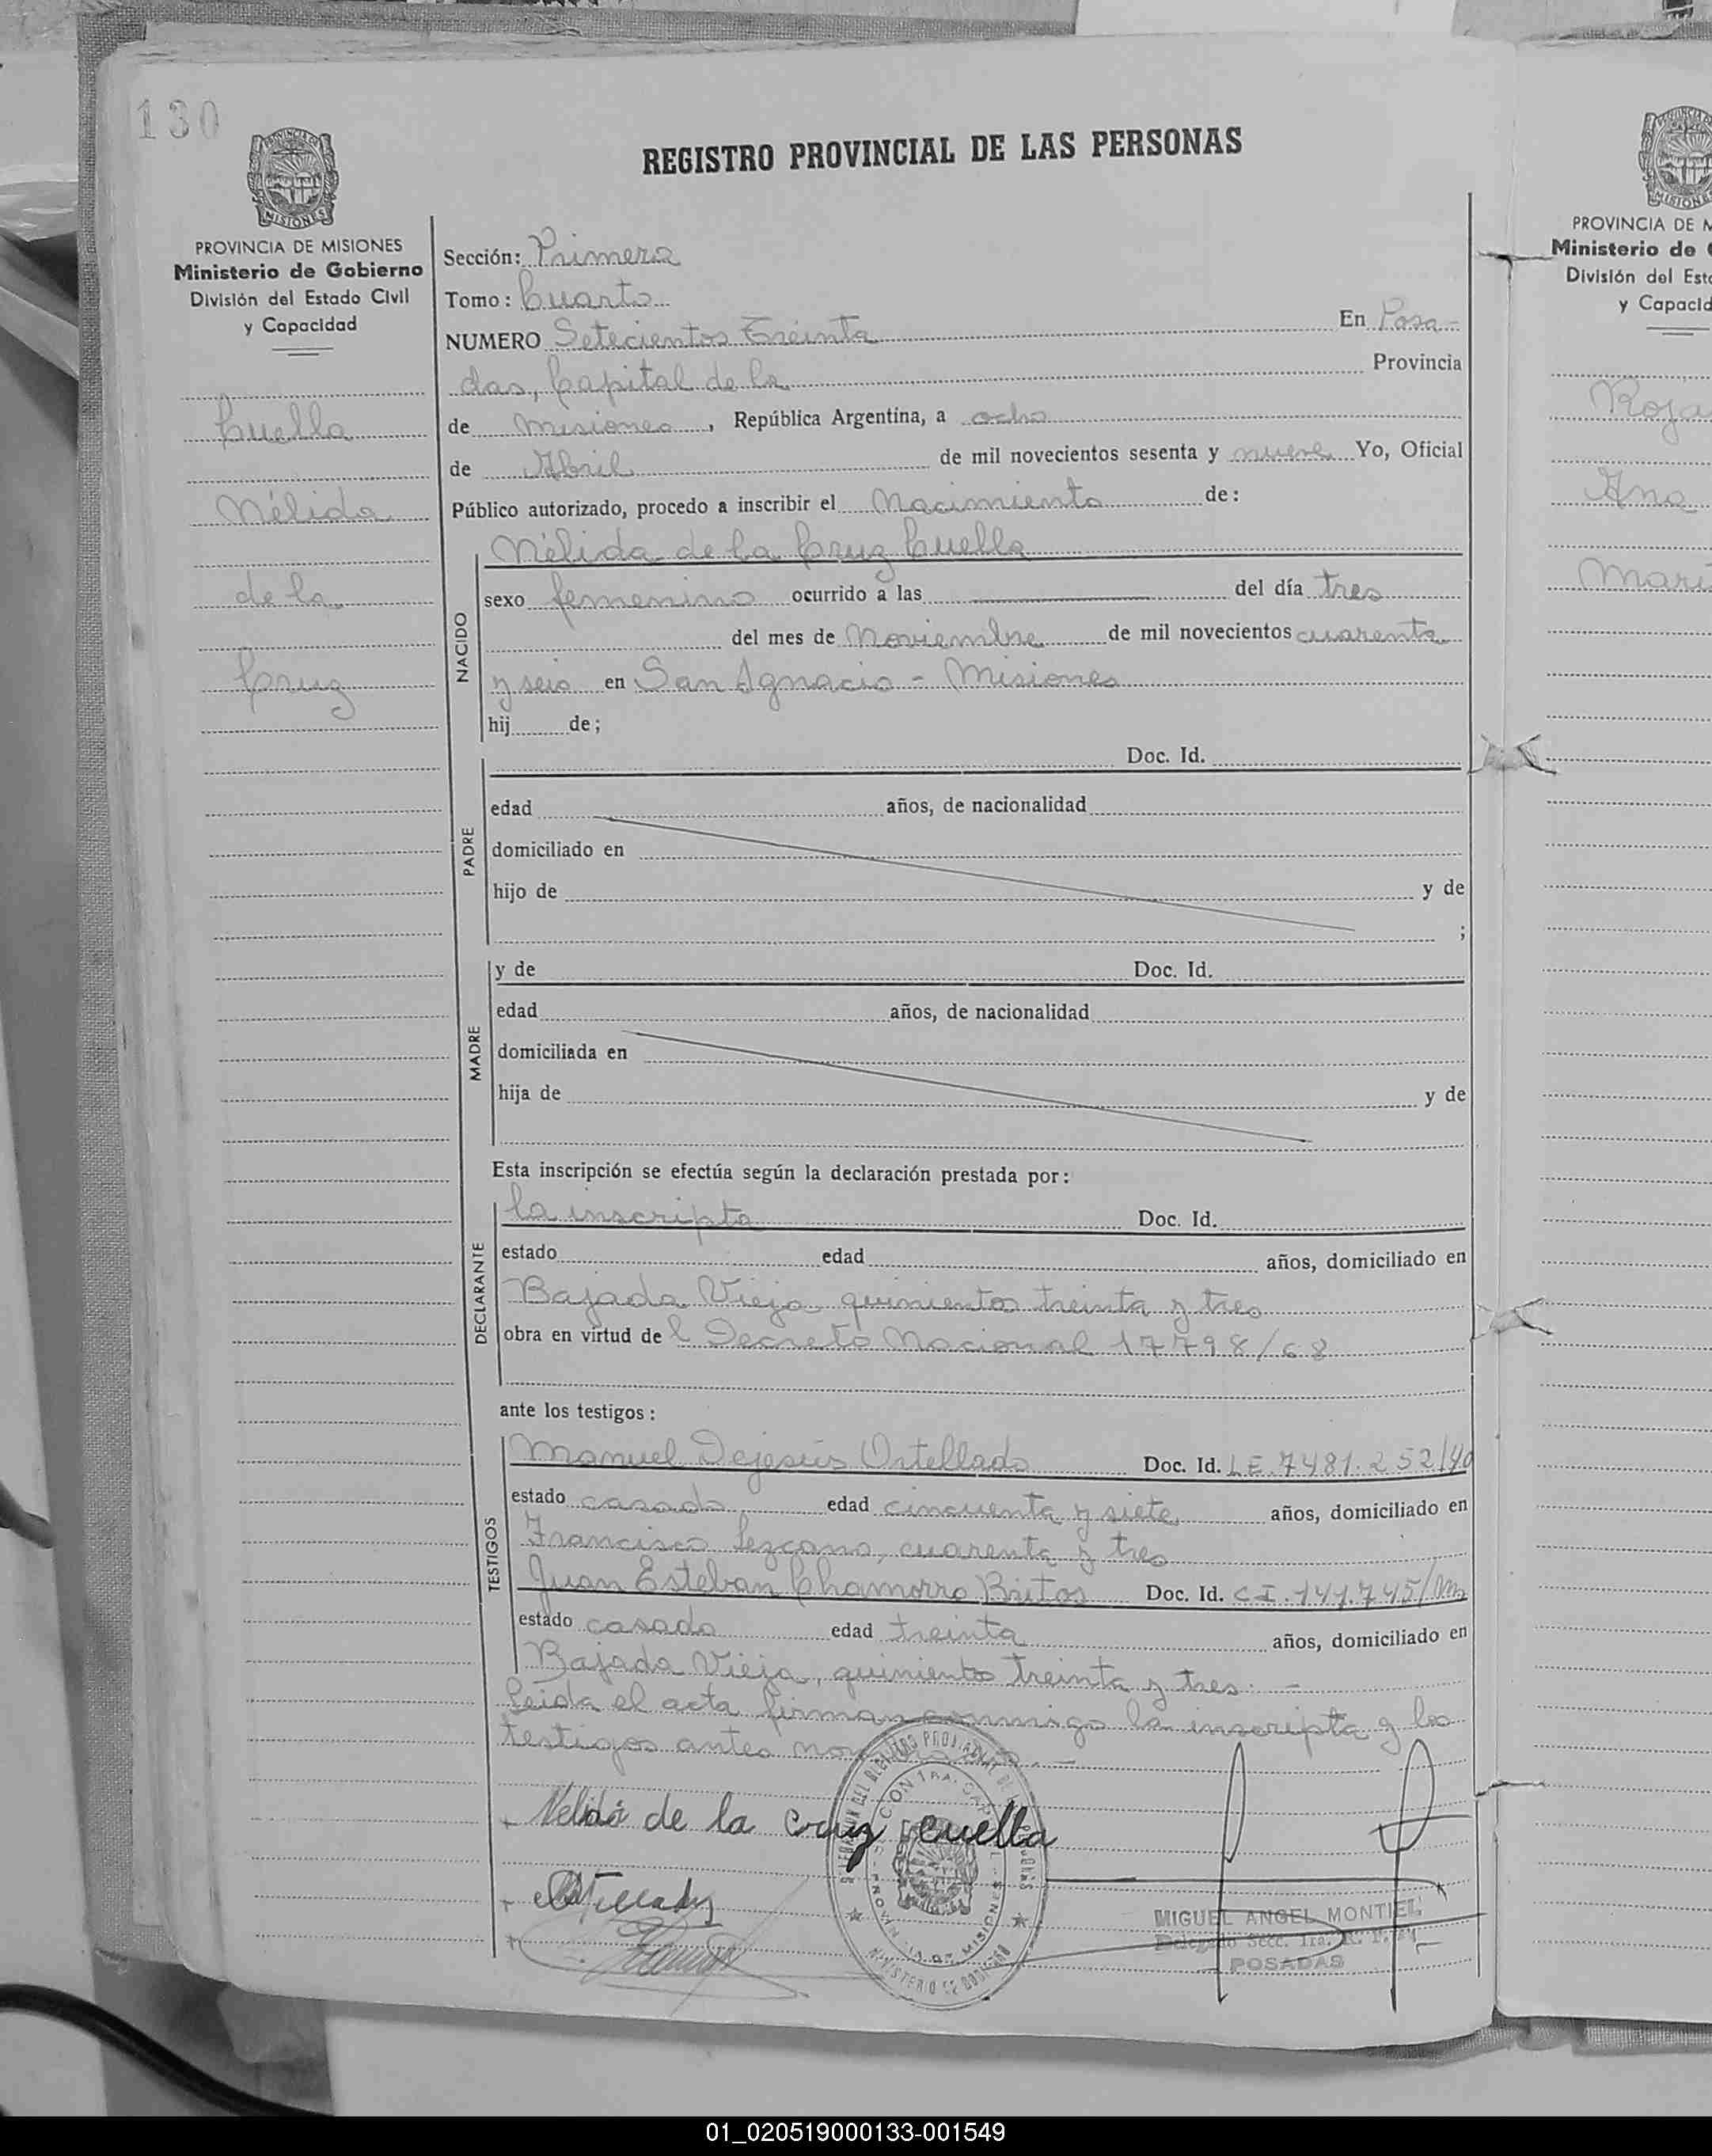 130
REGISTRO PROVINCIAL DE LAS PERSONAS
PROVINCIA DE MISIONES
Ministerio de Gobierno
División del Estado Civil
y Capacidad
Cuella
Nélida
de la
Cruz
Sección: Primera
Tomo: Cuarto
NUMERO Setecientos Treinta En Posa-
das, Capital de la Provincia
de Misiones, República Argentina, a ocho
de Abril de mil novecientos sesenta y nueve Yo, Oficial
Público autorizado, procedo a inscribir el Nacimiento de:
Nélida de la Cruz Cuella
NACIDO
sexo femenino ocurrido a las del día tres
del mes de Noviembre de mil novecientos cuarenta
y seis en San Ignacio - Misiones
hij de;
PADRE
Doc. Id.
edad años, de nacionalidad
domiciliado en
hijo de y de
;
MADRE
y de Doc. Id.
edad años, de nacionalidad
domiciliada en
hija de y de
Esta inscripción se efectúa según la declaración prestada por:
DECLARANTE
la inscripta Doc. Id.
estado edad años, domiciliado en
Bajada Vieja quinientos treinta y tres
obra en virtud de l Decreto Nacional 17798/68
ante los testigos:
TESTIGOS
Manuel Dejesús Ortellado Doc. Id. LE. 7481.252/40
estado casado edad cincuenta y siete años, domiciliado en
Francisco Lezcano, cuarenta y tres
Juan Esteban Chamorro Britos Doc. Id. CI. 141.745/Mn
estado casado edad treinta años, domiciliado en
Bajada Vieja, quinientos treinta y tres. -
Leída el acta firman conmigo la inscripta y los
testigos antes
Nelida de la Cruz cuella
SECCION 1RA. CAPITAL
PROVINCIA DE MISIONES
MINISTERIO DE GOBIERNO
MIGUEL ANGEL MONTIEL
Delegado Secc. 1ra. R. P.
POSADAS
PROVINCIA DE M
Ministerio de G
División del Esta
y Capacid
Roja
Ana
Marí
01_020519000133-001549